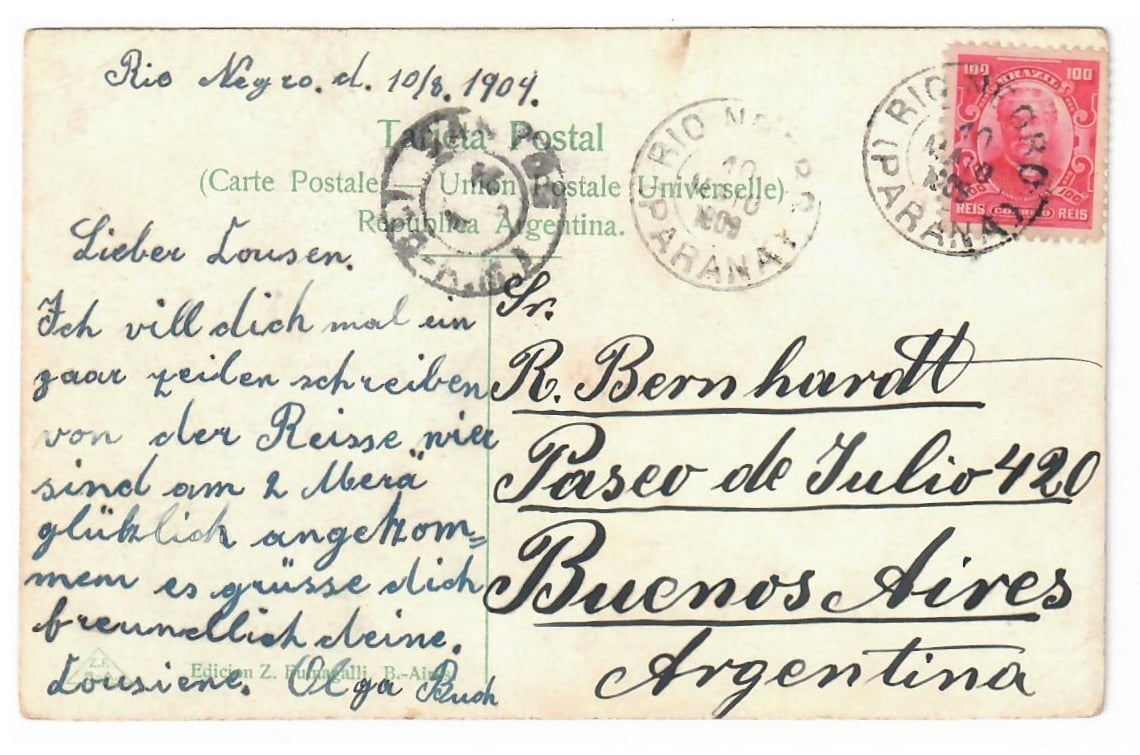 Rio Negro. d. 10/8. 1909.
Tarjeta Postal
(Carte Postale — Union Postale Universelle)
República Argentina.
RIO NEGRO
10
1909
(PARANA)
100 BRAZIL 100
REIS CORREIO REIS
RIO NEGRO
10
1909
(PARANA)
Lieber Lousen.
Ich vill dich mal ein
paar zeilen schreiben
von der Reisse wier
sind am 2 Merä
glüklich angekom=
mem es grüsse dich
freundlich deine.
Lousiene. Olga Buch
Sr.
R. Bernhardt
Paseo de Julio 420
Buenos Aires
Argentina
Z.F.
Edicion Z. Fumagalli, B.-Aires